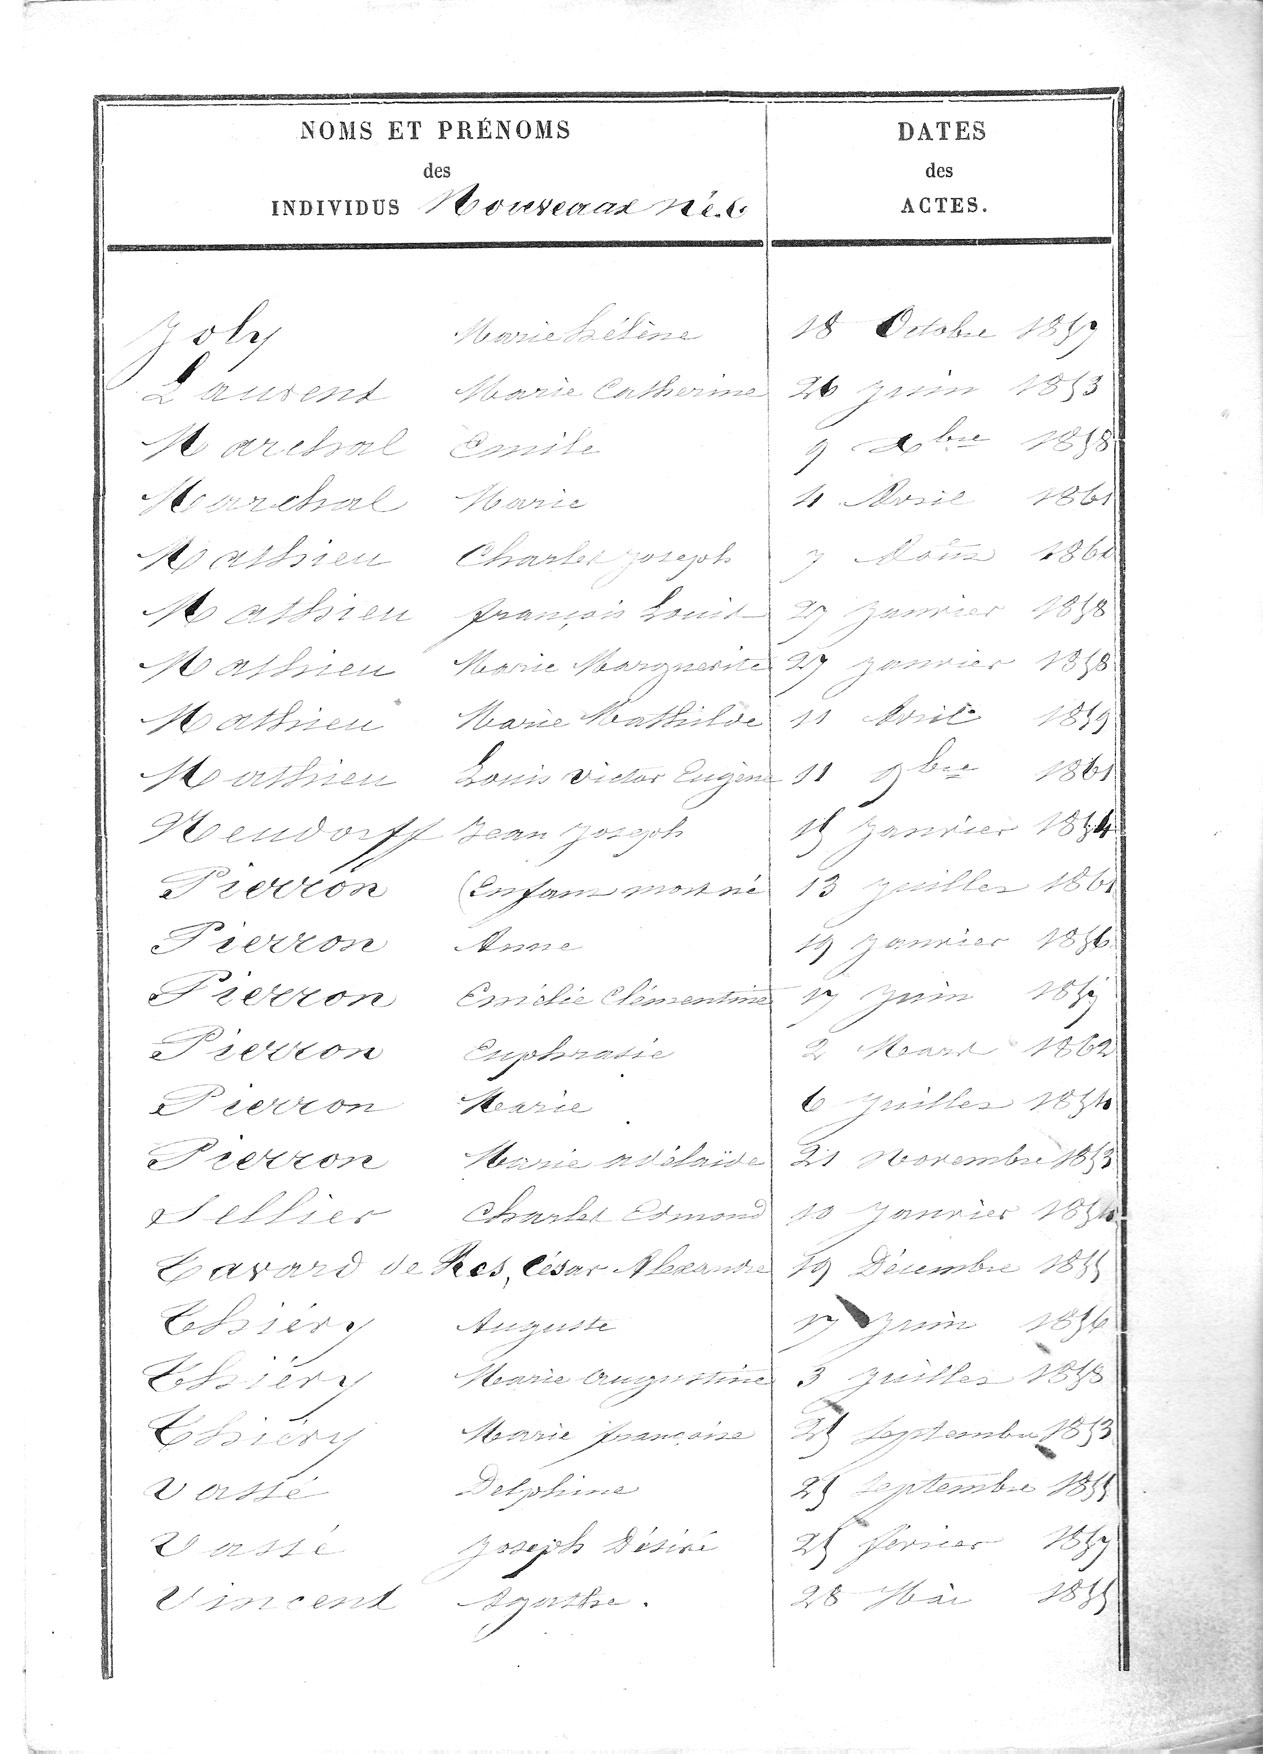 NOMS ET PRÉNOMS
des
INDIVIDUS Nouveaux Nés
DATES
des
ACTES.
Joly Marie hélène 18 Octobre 1857
Laurent Marie Catherine 26 juin 1853
Marchal Emile 9 Xbre 1858
Marchal Marie 4 Avril 1861
Mathieu Charles joseph 7 Août 1861
Mathieu françois Louis 27 janvier 1858
Mathieu Marie Marguerite 27 janvier 1858
Mathieu Marie Mathilde 11 Avril 1859
Mathieu Louis victor Eugène 11 9bre 1861
Neudorff Jean joseph 15 janvier 1854
Pierron (Enfant mort né 13 juillet 1861
Pierron Anne 19 janvier 1856
Pierron Emélie Clémentine 17 juin 1857
Pierron Euphrasie 2 Mars 1862
Pierron Marie 6 juillet 1854
Pierron Marie adélaïde 21 Novembre 1853
Sellier Charles Edmond 10 janvier 1854
Tavard de Res, César Alexandre 19 Décembre 1855
Thiéry Auguste 17 juin 1856
Thiéry Marie augustine 3 juillet 1858
Thiéry Marie françoise 25 septembre 1853
Vassé Delphine 25 septembre 1855
Vassé joseph Désiré 25 février 1857
Vincent Agathe. 28 Mai 1855